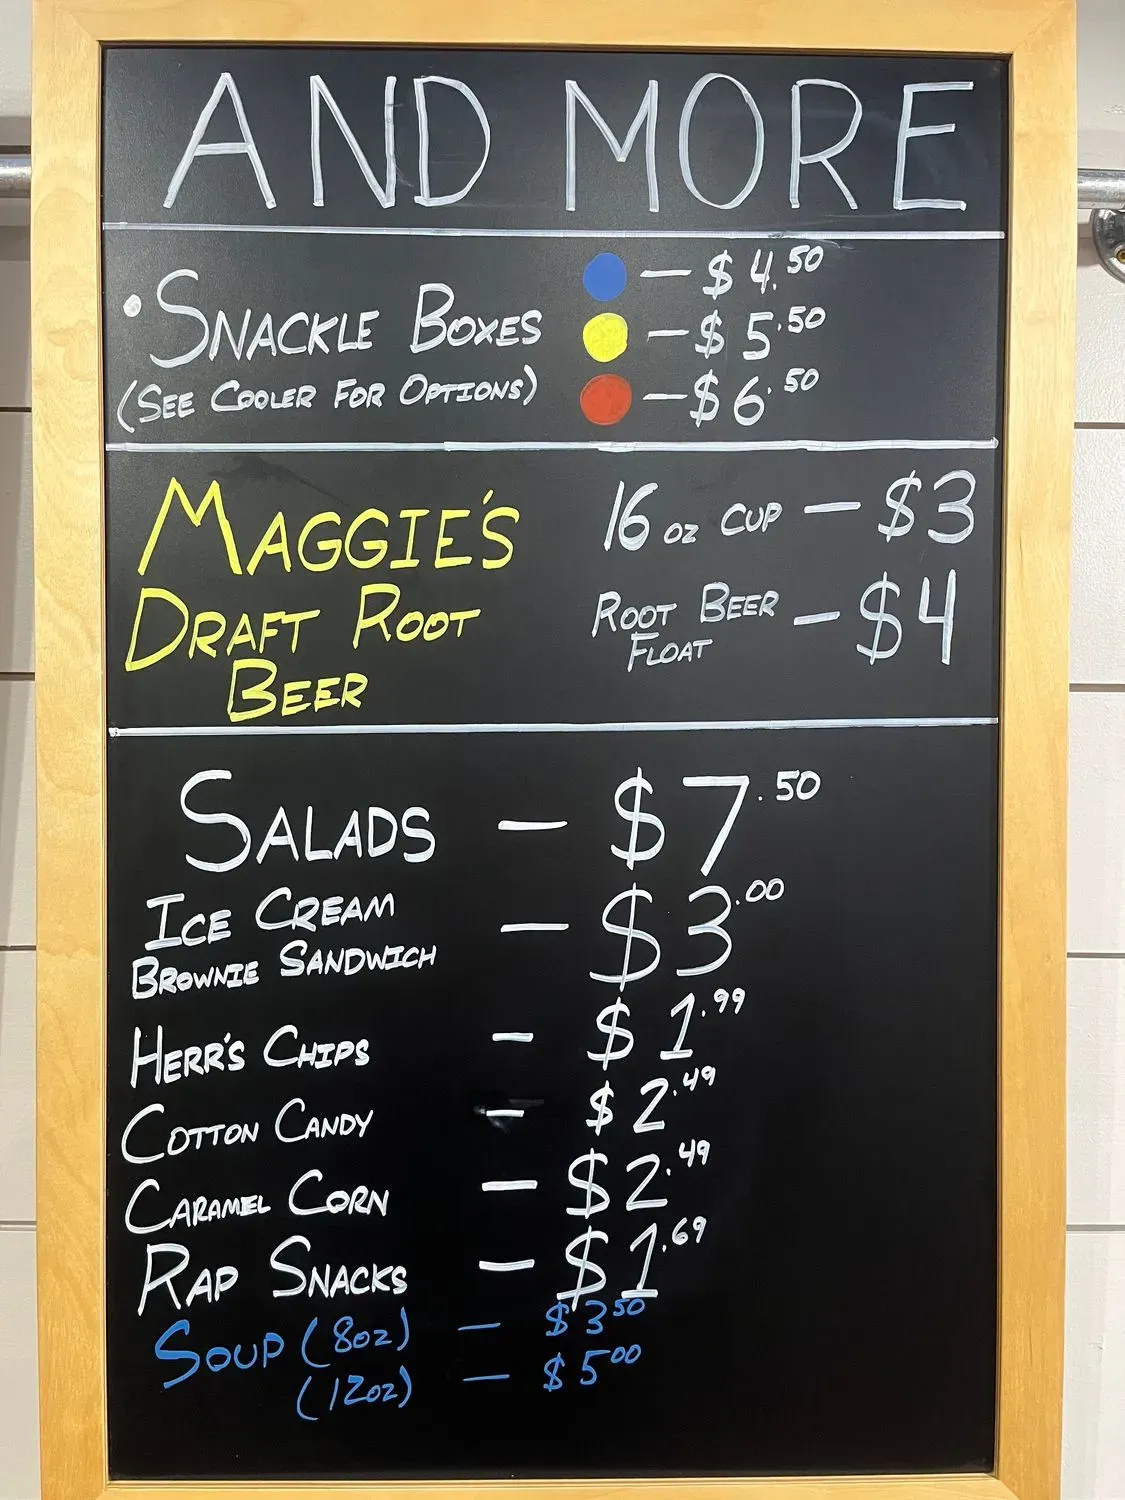 AND MORE
• SNACKLE BOXES
(SEE COOLER FOR OPTIONS)
— $4.50
— $5.50
— $6.50
MAGGIE'S
DRAFT ROOT
BEER
16 oz CUP — $3
ROOT BEER
FLOAT — $4
SALADS — $7.50
ICE CREAM
BROWNIE SANDWICH — $3.00
HERR'S CHIPS — $1.99
COTTON CANDY — $2.49
CARAMEL CORN — $2.49
RAP SNACKS — $1.69
SOUP (8oz) — $3.50
(12oz) — $5.00